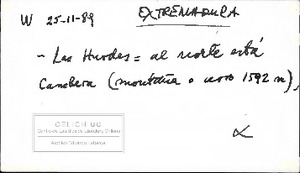 W 25-11-89 EXTREMADURA
- Las Hurdes = al norte está
Canchera (montaña o cerro 1592 m),
CELICH UC
Centro de Estudios de Literatura Chilena